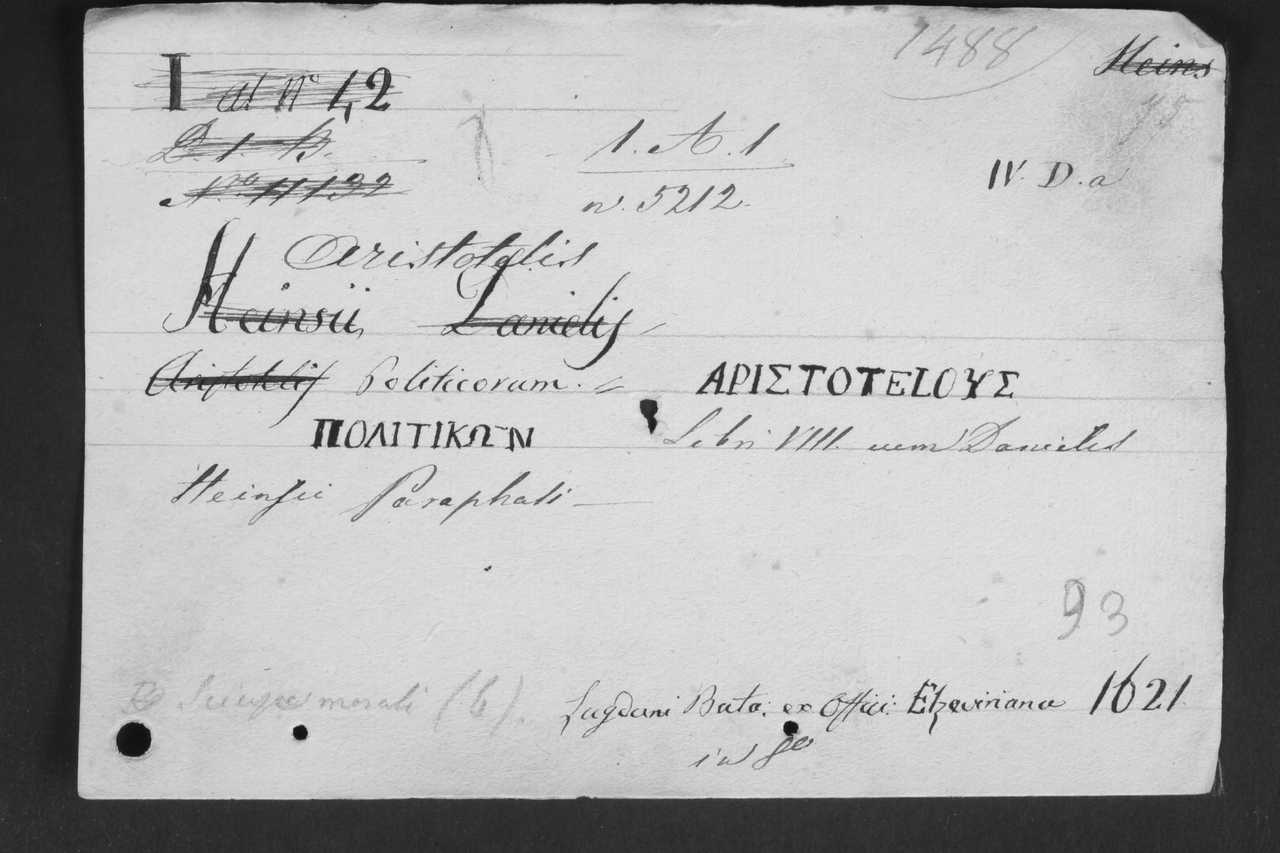 1488
Heins
I al Nº 42
D. 1. B.
1. A. 1
IV. D. a
Nro 11132
n. 5212.
Aristotelis
Heinsii, Danielis
Aristotelis Politicorum. ΑΡΙΣΤΟΤΕΙΟΥΣ
ΠΟΛΙΤΙΚΩ῀Ν Libri VIII. cum Danielis
Heinsii Paraphasi
93
morali (6). Lugduni Bata: ex Offici: Elzeviriana 1621
in 8º